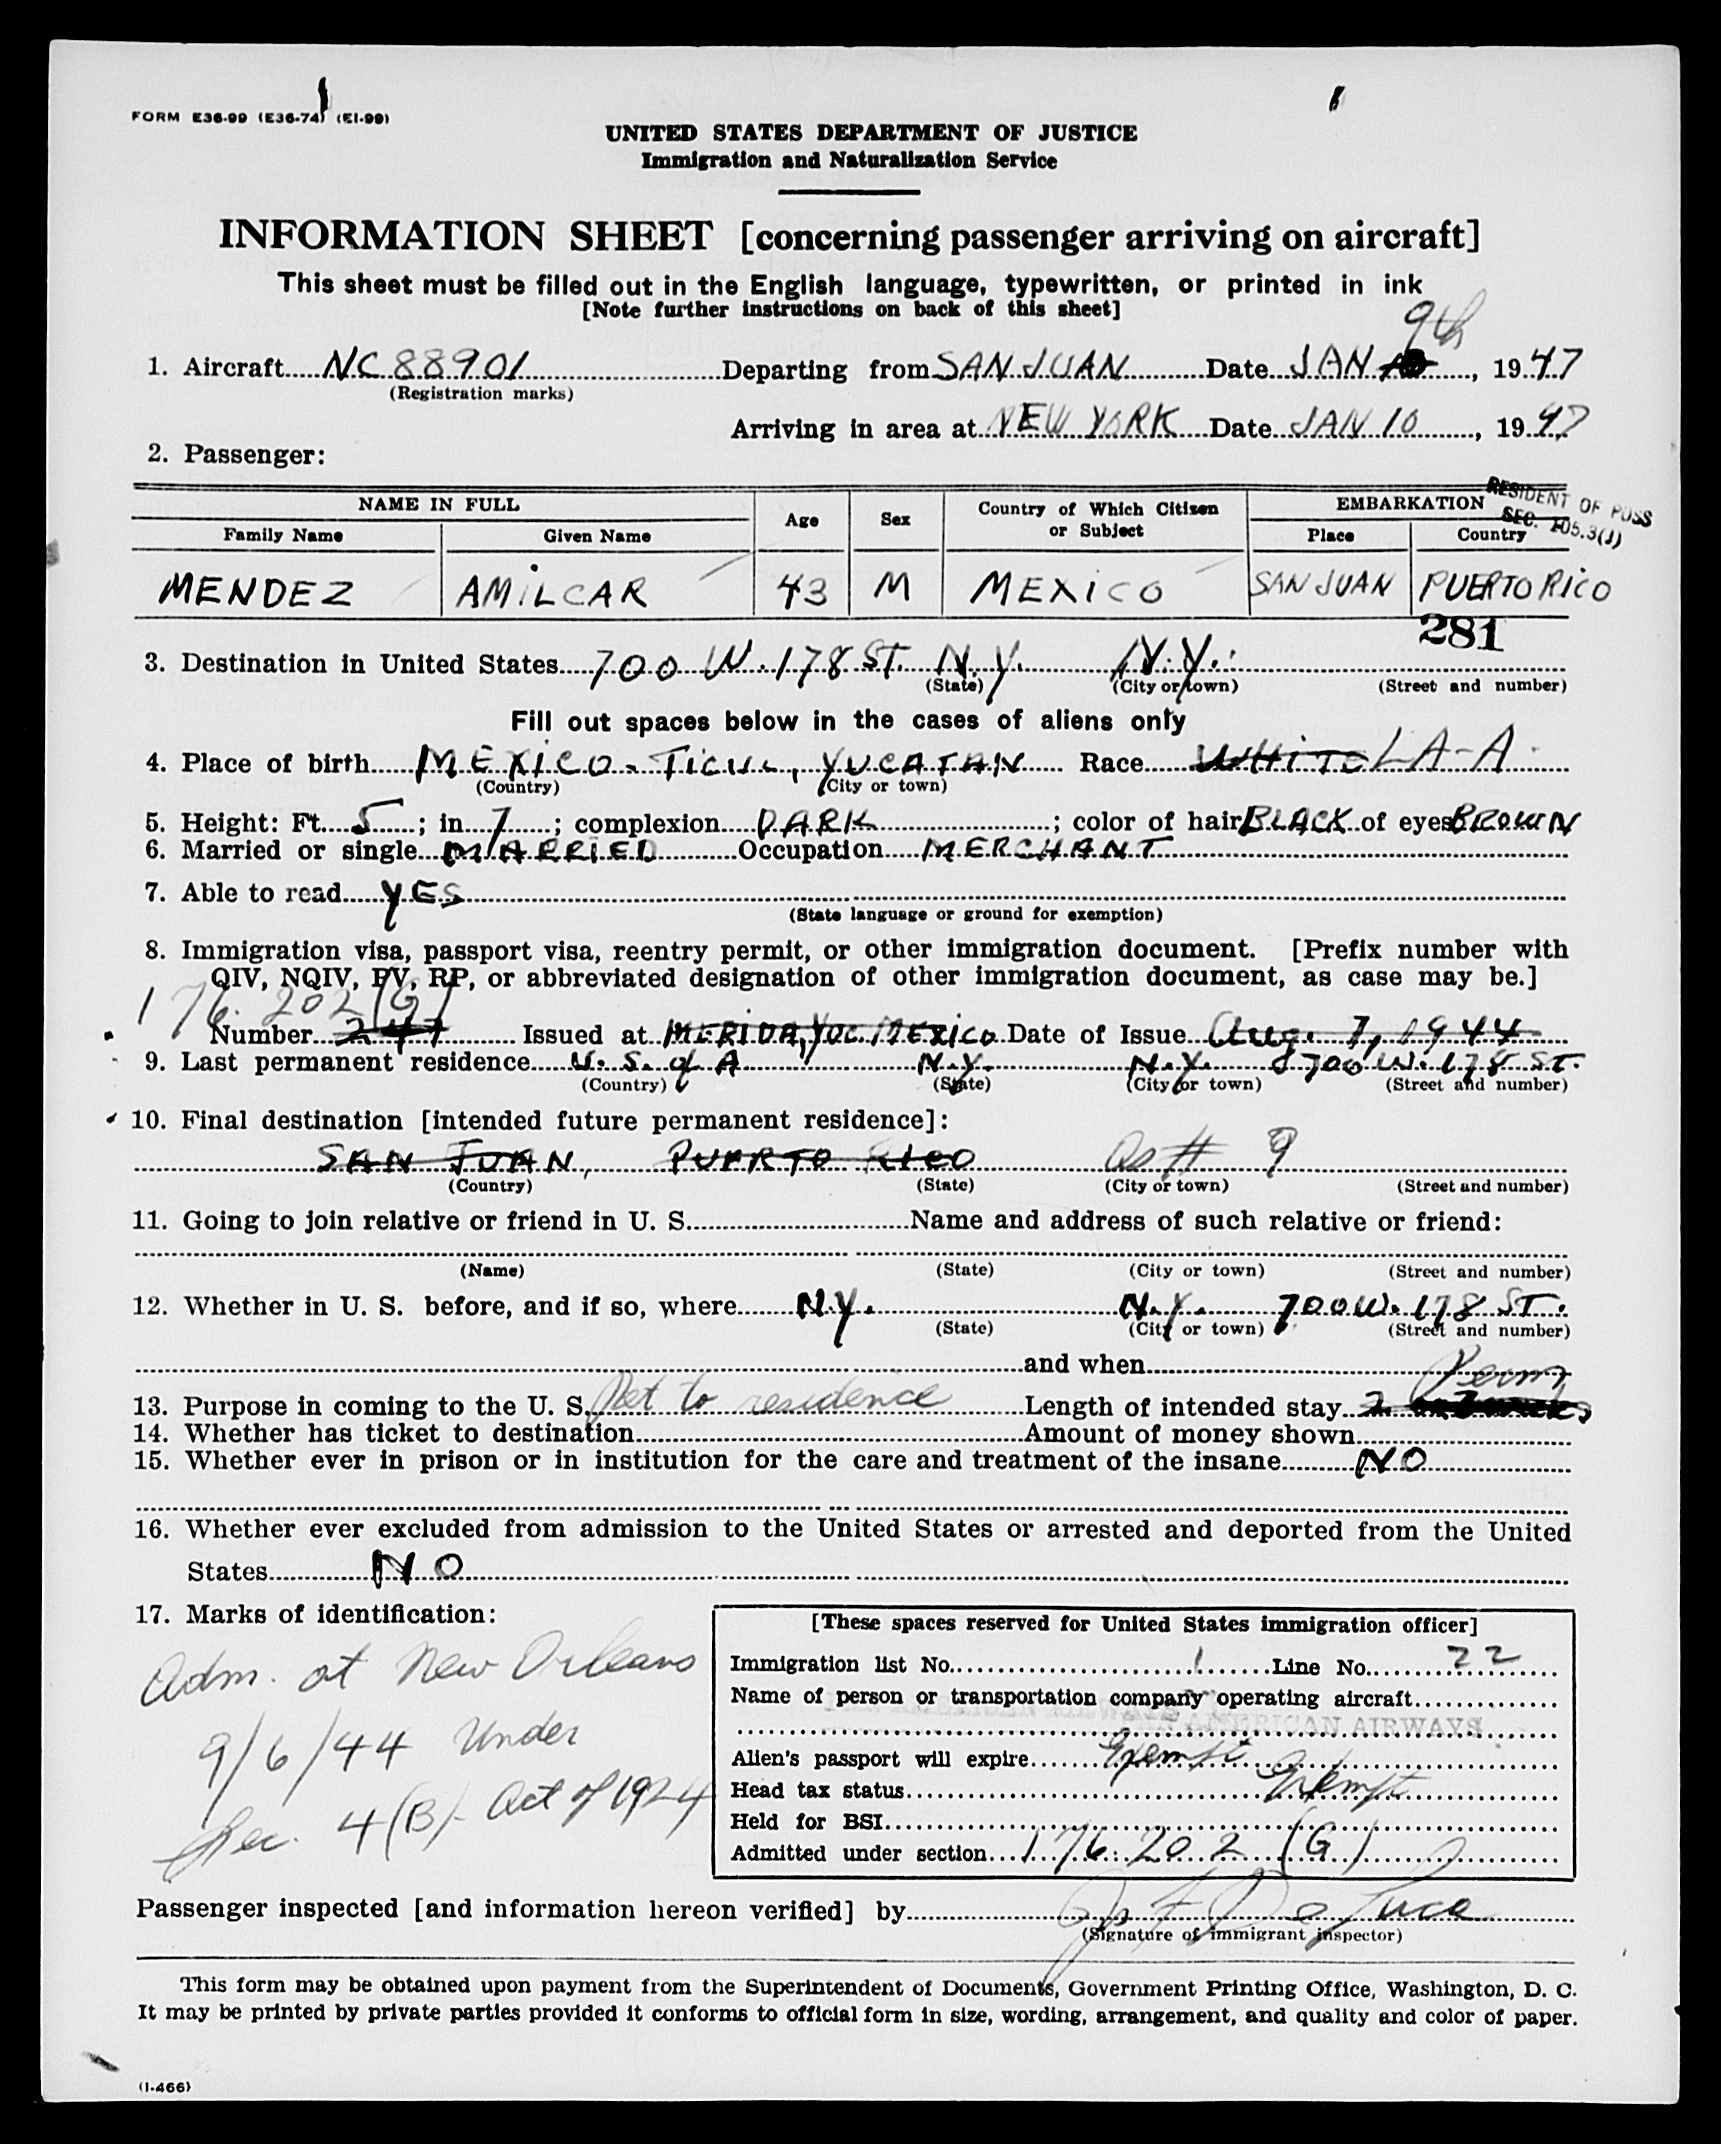 FORM E36-99 (E36-74) (E1-99)
UNITED STATES DEPARTMENT OF JUSTICE
Immigration and Naturalization Service
INFORMATION SHEET [concerning passenger arriving on aircraft]
This sheet must be filled out in the English language, typewritten, or printed in ink
[Note further instructions on back of this sheet]
9th
1. Aircraft NC 88901 Departing from SAN JUAN Date JAN , 1947
(Registration marks)
Arriving in area at NEW YORK Date JAN 10, 1947
2. Passenger:
RESIDENT OF POSS
SEC. 105.3(J)
NAME IN FULL Age Sex Country of Which Citizen or Subject EMBARKATION
Family Name Given Name Place Country
MENDEZ AMILCAR 43 M MEXICO SAN JUAN PUERTO RICO
281
3. Destination in United States 700 W. 178 ST. N.Y. N.Y.
(State) (City or town) (Street and number)
Fill out spaces below in the cases of aliens only
4. Place of birth MEXICO - TICUL, YUCATAN Race WHITE LA-A
(Country) (City or town)
5. Height: Ft. 5; in. 7; complexion DARK; color of hair BLACK of eyes BROWN
6. Married or single MARRIED Occupation MERCHANT
7. Able to read YES
(State language or ground for exemption)
8. Immigration visa, passport visa, reentry permit, or other immigration document. [Prefix number with
QIV, NQIV, PV, RP, or abbreviated designation of other immigration document, as case may be.]
176.202 (G)
Number 247 Issued at MERIDA, YUC. MEXICO Date of Issue Aug. 7, 1944
9. Last permanent residence U.S. of A N.Y. N.Y. 700 W. 178 ST.
(Country) (State) (City or town) (Street and number)
10. Final destination [intended future permanent residence]:
SAN JUAN, PUERTO RICO As # 9
(Country) (State) (City or town) (Street and number)
11. Going to join relative or friend in U. S. Name and address of such relative or friend:
(Name) (State) (City or town) (Street and number)
12. Whether in U. S. before, and if so, where N.Y. N.Y. 700 W. 178 ST.
(State) (City or town) (Street and number)
and when
Perm
13. Purpose in coming to the U. S. Ret to residence Length of intended stay 2
14. Whether has ticket to destination Amount of money shown
15. Whether ever in prison or in institution for the care and treatment of the insane NO
16. Whether ever excluded from admission to the United States or arrested and deported from the United
States NO
17. Marks of identification:
Adm. at New Orleans
9/6/44 Under
Sec. 4(B)- Act of 1924
[These spaces reserved for United States immigration officer]
Immigration list No. 1 Line No. 22
Name of person or transportation company operating aircraft
AMERICAN AIRWAYS
Alien's passport will expire Exempt
Head tax status Exempt
Held for BSI
Admitted under section 176.202 (G)
Passenger inspected [and information hereon verified] by De Luca
(Signature of immigrant inspector)
This form may be obtained upon payment from the Superintendent of Documents, Government Printing Office, Washington, D. C.
It may be printed by private parties provided it conforms to official form in size, wording, arrangement, and quality and color of paper.
(I-466)